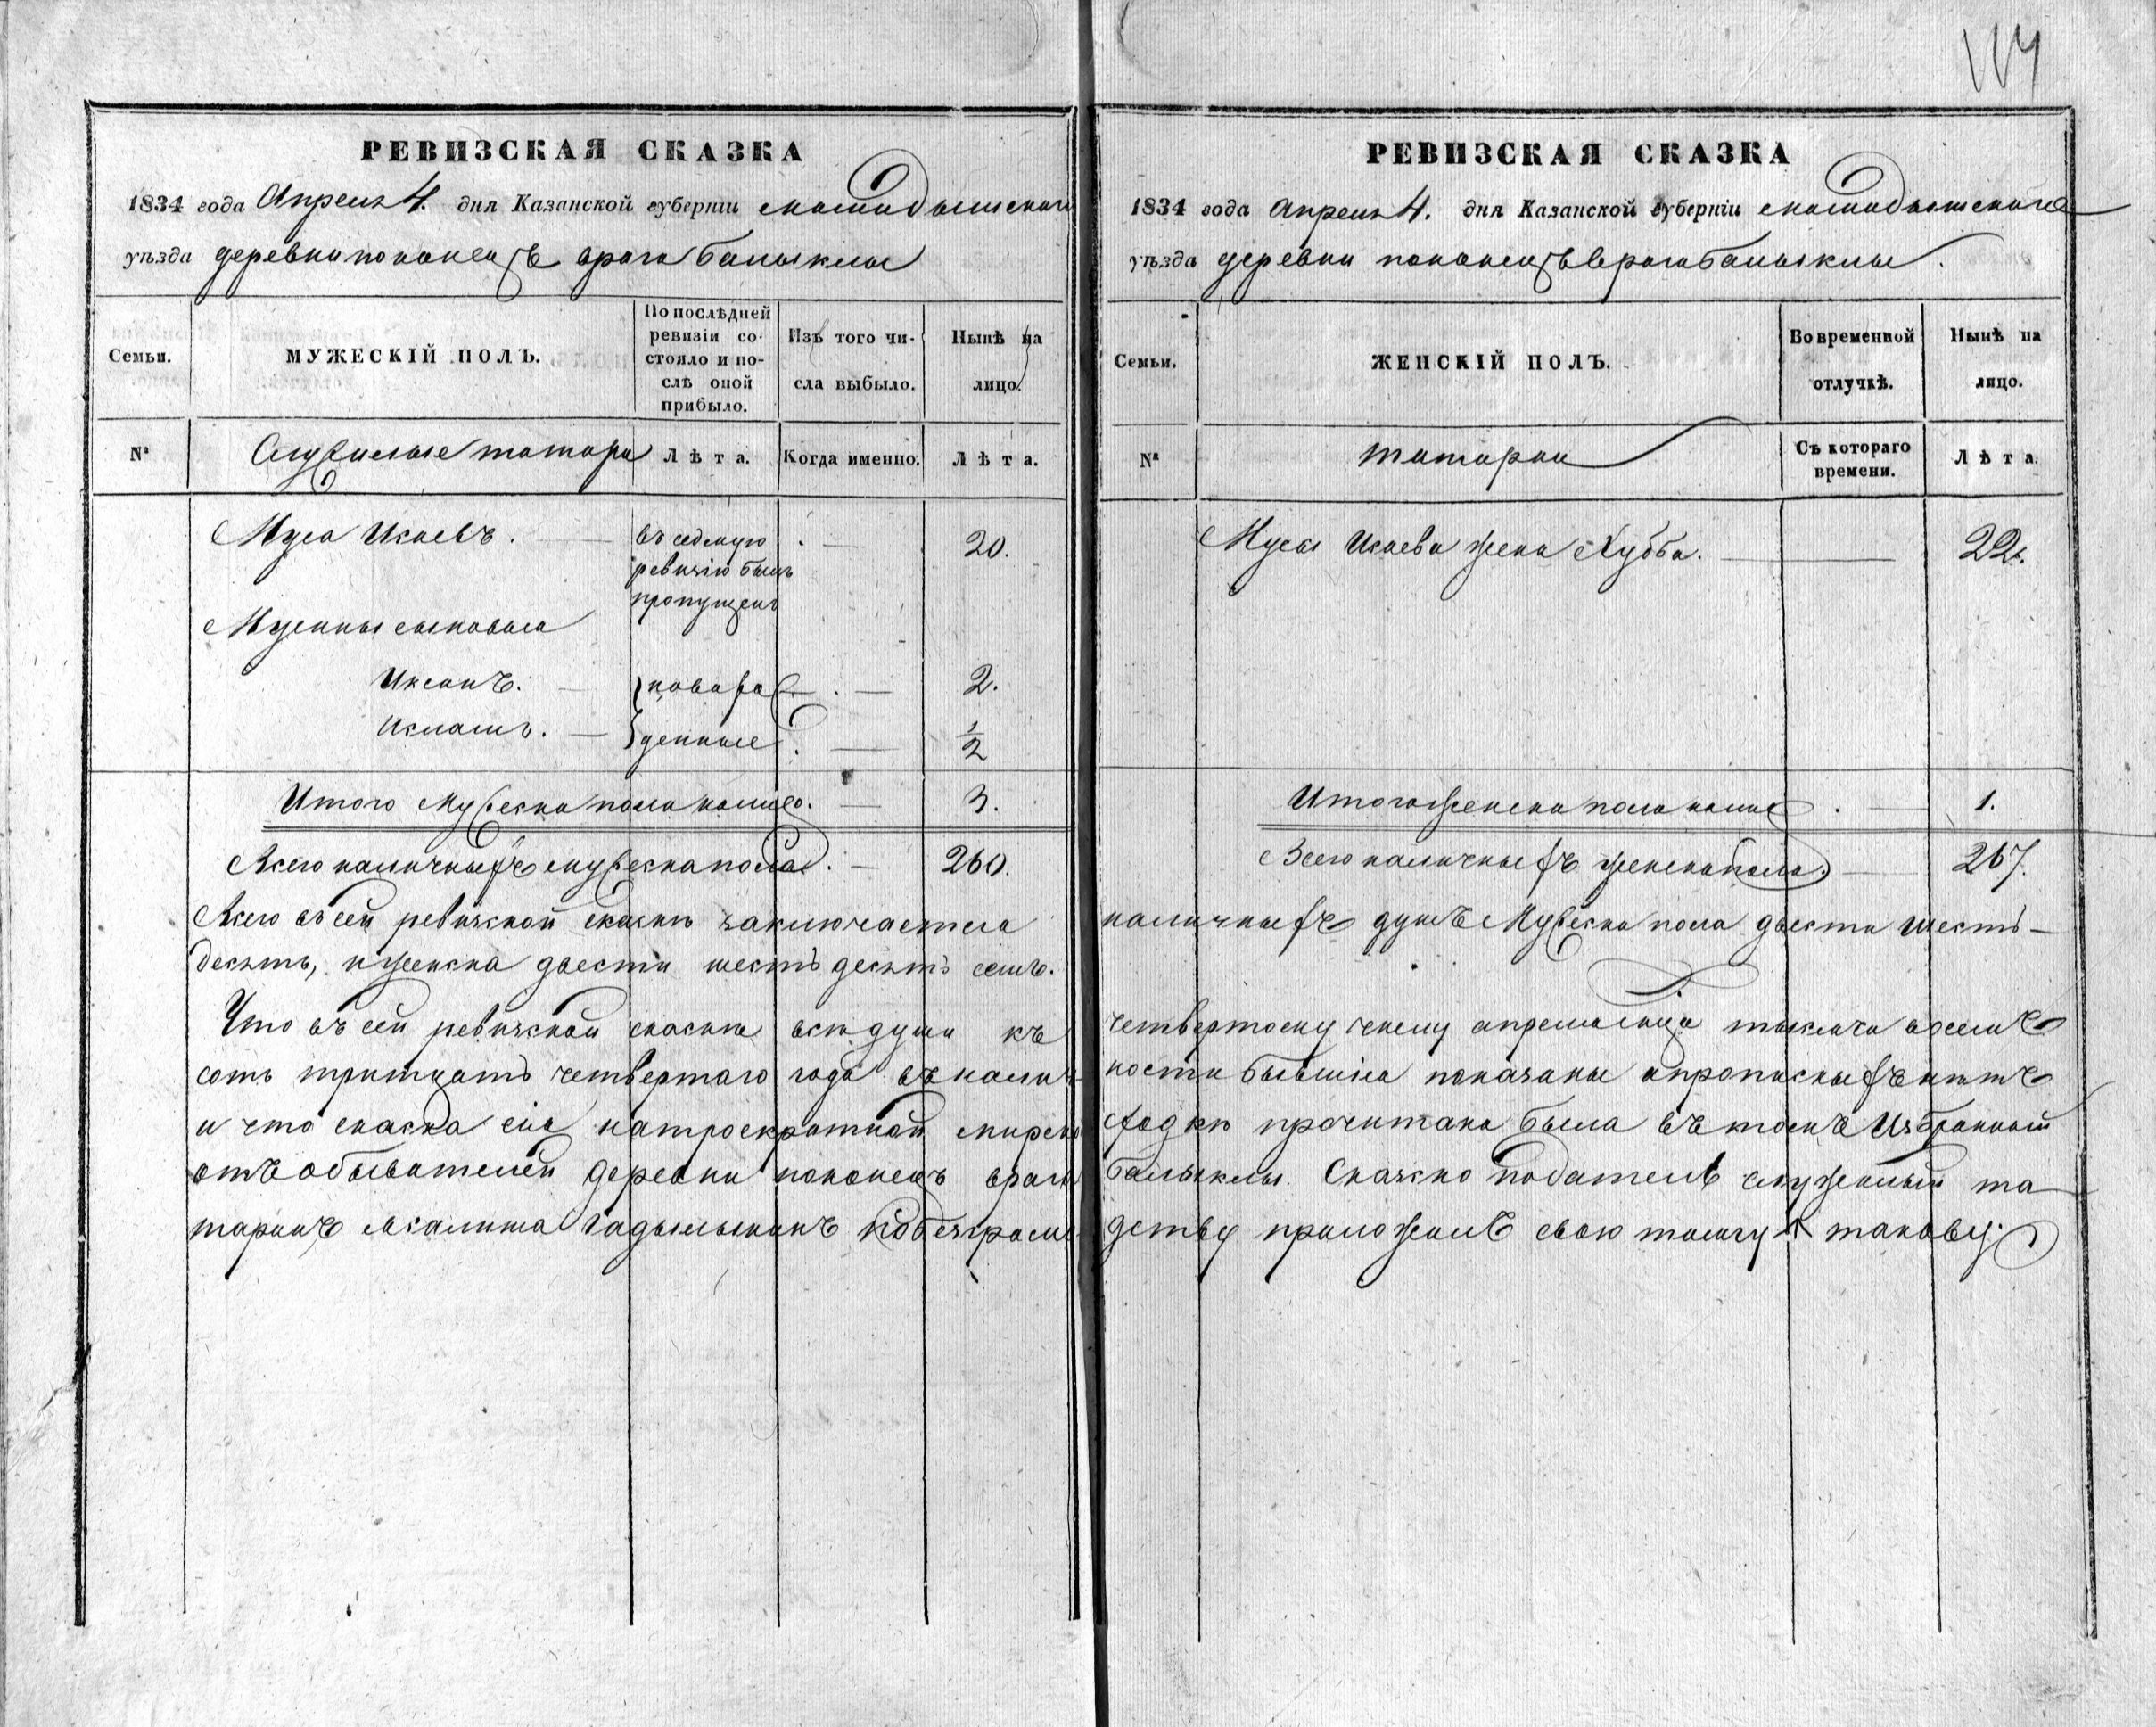 114
РЕВИЗСКАЯ СКАЗКА
1834 года Апреля 4. дня Казанской губерніи мамадышскаго
уѣзда деревни поконецъ врага балыклы
Семьи.
МУЖЕСКІЙ ПОЛЪ.
По послѣдней
ревизіи со-
стояло и по-
слѣ оной
прибыло.
Изъ того чи-
сла выбыло.
Нынѣ на
лицо.
№
Служилые татары
Лѣта.
Когда именно.
Лѣта.
Муса Исаевъ.
въ седмую
ревизію былъ
пропущенъ
20.
Мусины сыновья
Иксанъ.
новораж
2.
Исмаилъ.
денные
1/2
Итого мужеска пола налицо.
3.
Всего наличныхъ мужеска пола.
260.
Всего въ сей ревизской сказкѣ заключается
десять, и женска двести шесть десятъ семь.
Что въ сей ревизской сказкѣ всѣ души къ
сотъ тритцать четвертаго года въ налич
и что сказка сия на троекратной мирско
отъ обывателей деревни поконецъ врага
таринъ Гадыльшинъ по безграмо
РЕВИЗСКАЯ СКАЗКА
1834 года апреля 4. дня Казанской губерніи мамадышскаго
уѣзда деревни поконецъ врага балыклы.
Семьи.
ЖЕНСКІЙ ПОЛЪ.
Во временной
отлучкѣ.
Нынѣ на
лицо.
№
татарки
Съ котораго
времени.
Лѣта.
Мусы Исаева жена Хубба.
22.
Итого женска пола налицо.
1.
Всего наличныхъ женска пола.
267.
наличныхъ душъ мужеска пола двести шесть-
четвертому числу апреля тысяча восемъ
ности бывшіа показаны а прописныхъ нѣтъ
сходкѣ прочитана была въ томъ Избранный
балыклы Сказко податель служилый та
детву приложилъ свою тамгу такову: